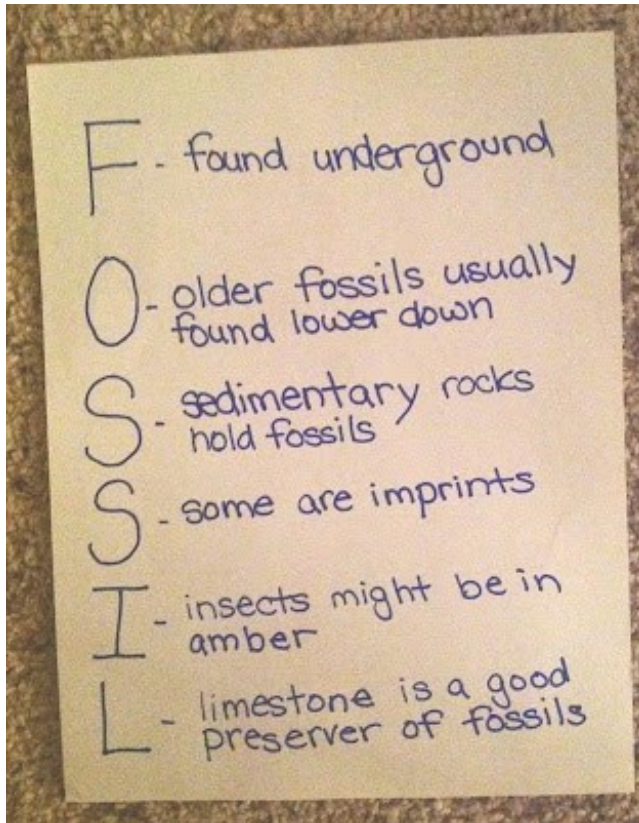 F - found underground
O - older fossils usually
found lower down
S - sedimentary rocks
hold fossils
S - some are imprints
I - insects might be in
amber
L - limestone is a good
preserver of fossils